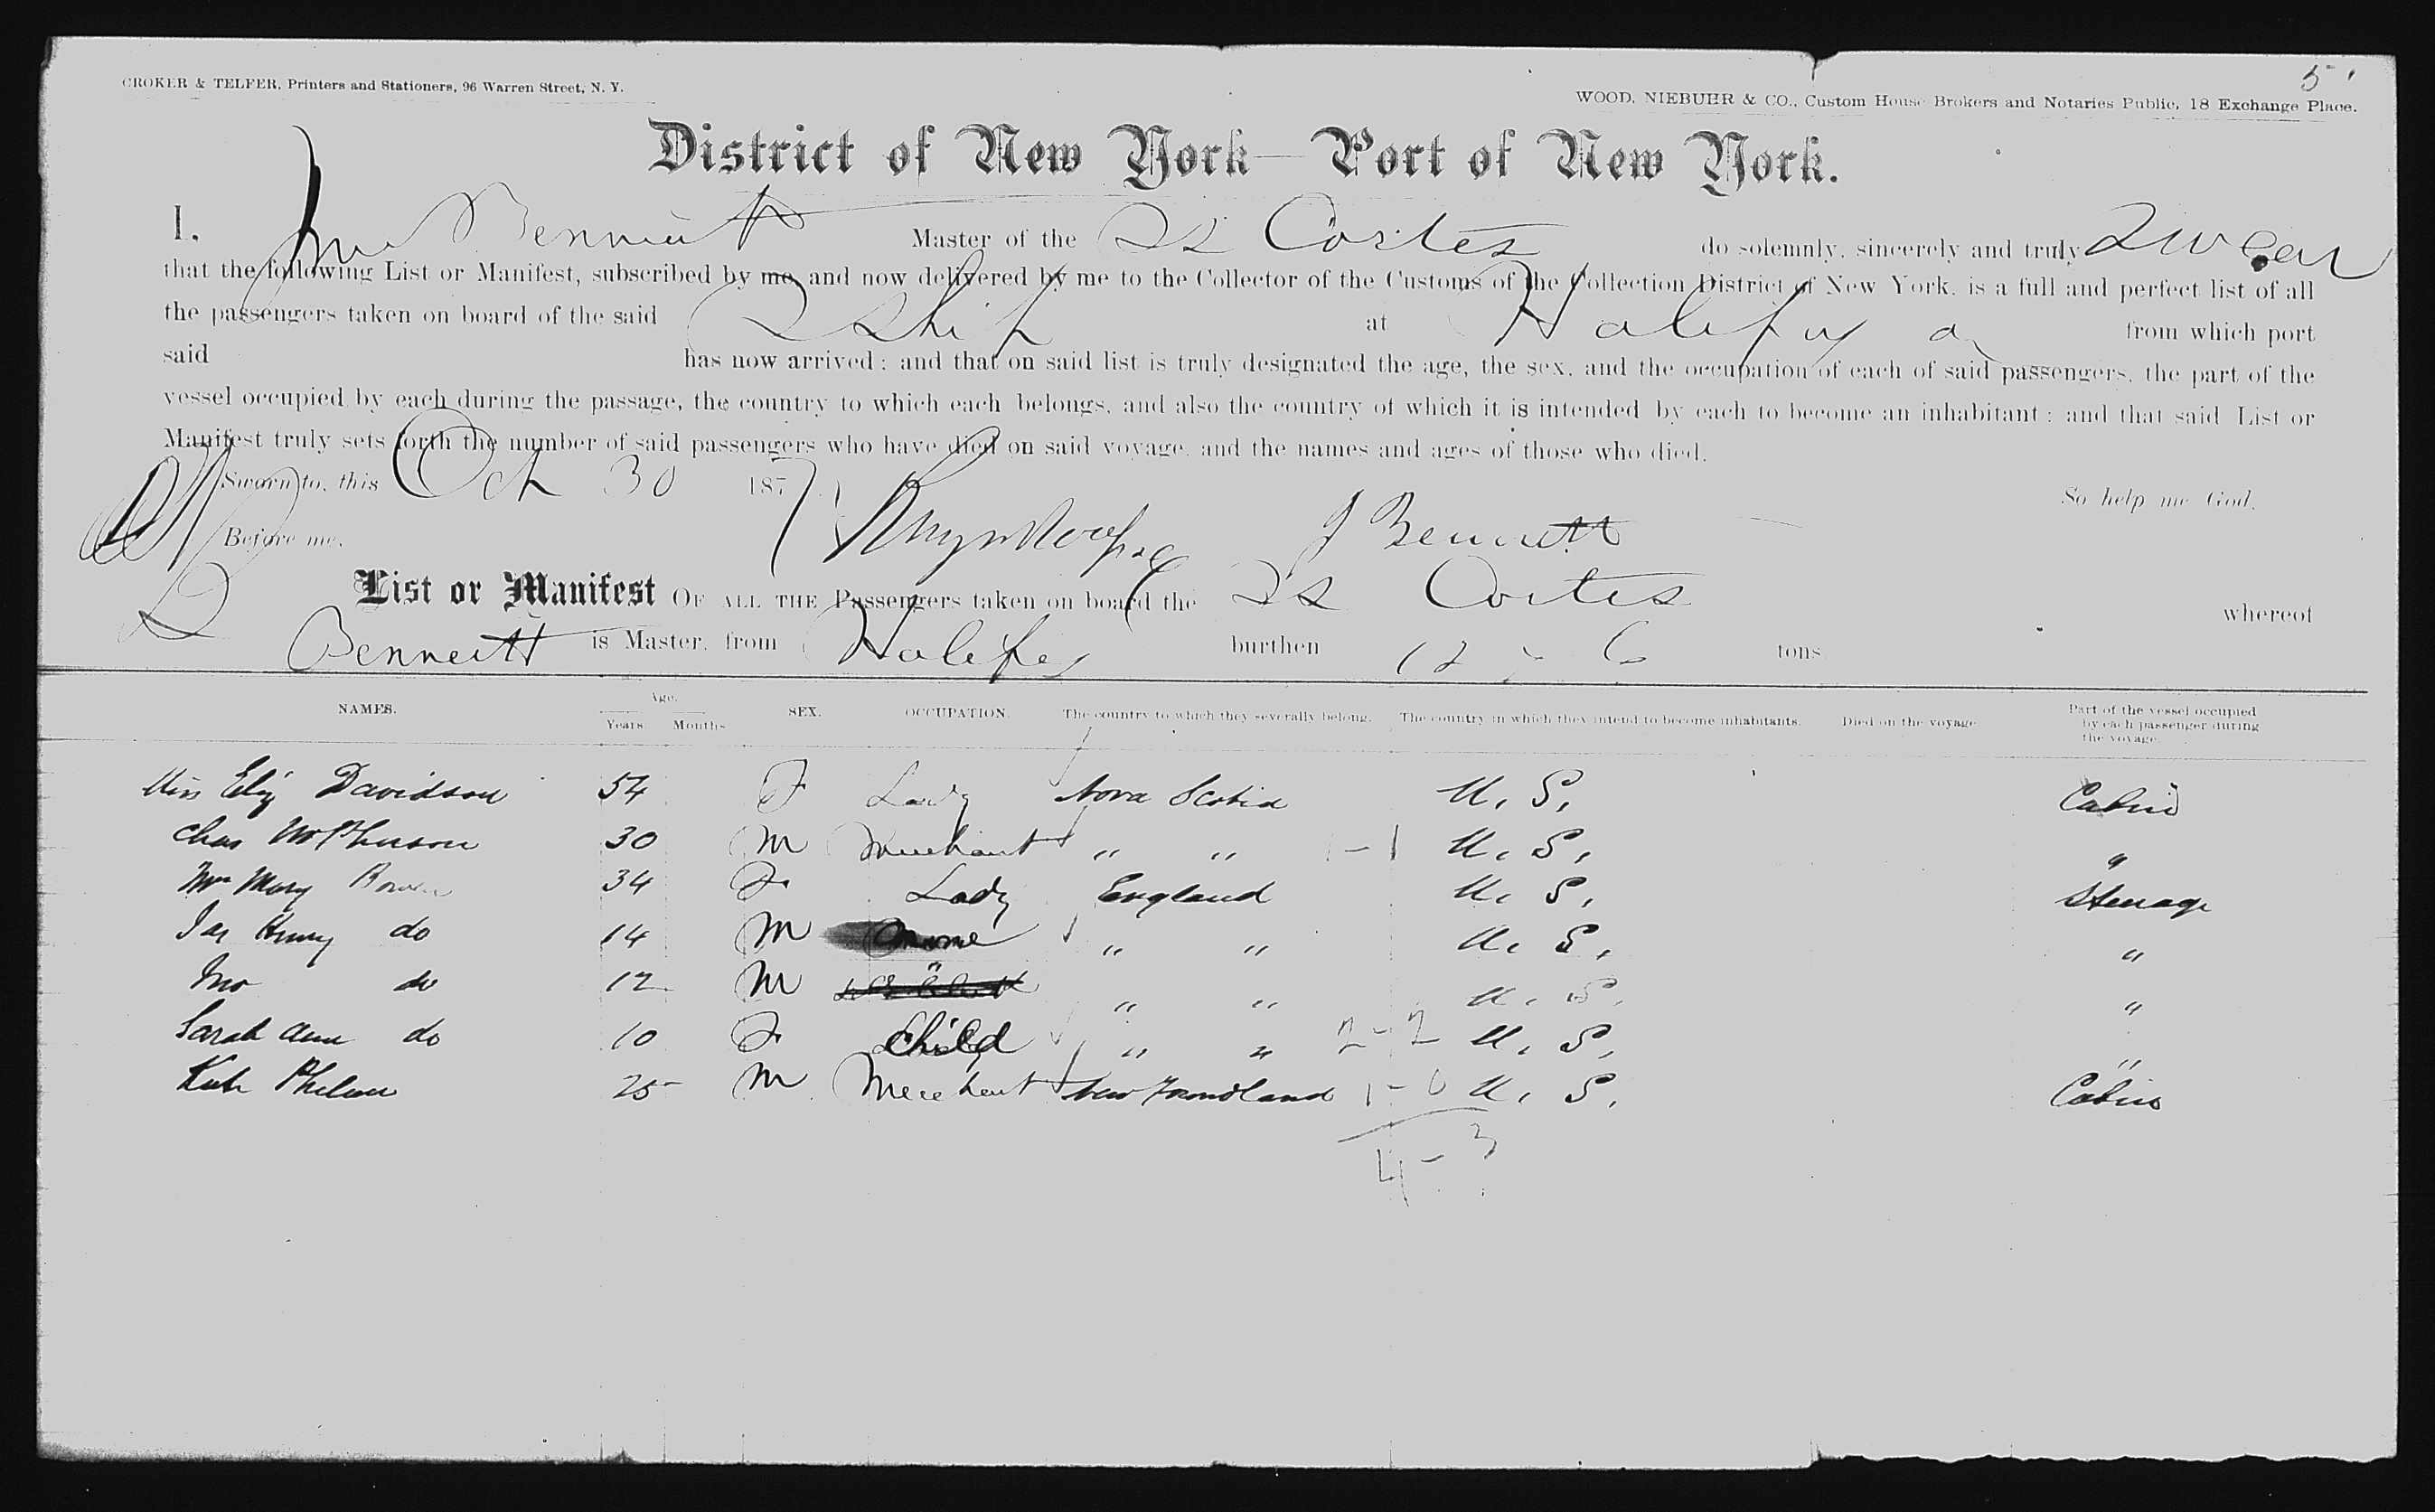 5
CROKER & TELFER, Printers and Stationers, 96 Warren Street, N. Y.
WOOD, NIEBUHR & CO., Custom House Brokers and Notaries Public, 18 Exchange Place.
District of New York—Port of New York.
I, Bennett Master of the SS Cortes do solemnly, sincerely and truly Swear
that the following List or Manifest, subscribed by me, and now delivered by me to the Collector of the Customs of the Collection District of New York, is a full and perfect list of all
the passengers taken on board of the said SShip at Halifax from which port
said has now arrived; and that on said list is truly designated the age, the sex, and the occupation of each of said passengers, the part of the
vessel occupied by each during the passage, the country to which each belongs, and also the country of which it is intended by each to become an inhabitant; and that said List or
Manifest truly sets forth the number of said passengers who have died on said voyage, and the names and ages of those who died.
Sworn to, this Oct 30 187 So help me God.
Before me, J Bennett
List or Manifest OF ALL THE Passengers taken on board the SS Cortes whereof
Bennett is Master, from Halifax burthen tons
NAMES. Age. Years Months SEX. OCCUPATION. The country to which they severally belong. The country in which they intend to become inhabitants. Died on the voyage Part of the vessel occupied by each passenger during the voyage.
Miss Eliz Davidson 54 F Lady Nova Scotia U. S. Cabin
Chas McPherson 30 M Merchant " " 1-1 U. S. "
Mrs Mary 34 F Lady England U. S. Steerage
Jas Henry do 14 M None " " U. S. "
Jno do 12 M " " " U. S. "
Sarah Ann do 10 F Child " " 2-2 U. S. "
Kate Phelan 25 M Merchant Newfoundland 1-0 U. S. Cabin
4-3